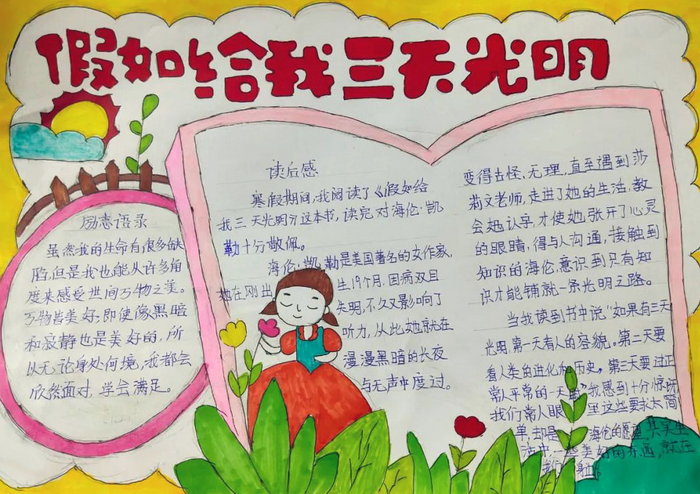 假如给我三天光明
励志语录
虽然我的生命有很多缺
陷,但是我也能从许多角
度来感受世间万物之美。
万物皆美好,即使像黑暗
和寂静也是美好的,所
以无论身处何境,我都会
欣然面对,学会满足。
读后感
寒假期间,我阅读了《假如给
我三天光明》这本书,读完对海伦·凯
勒十分敬佩。
海伦·凯勒是美国著名的女作家,
她在刚出生19个月,因病双目
失明,不久又影响了
听力,从此她就在
漫漫黑暗的长夜
与无声中度过。
变得古怪,无理,直至遇到莎
莉文老师,走进了她的生活,教
会她认字,才使她张开了心灵
的眼睛,得与人沟通,接触到
知识的海伦,意识到只有知
识才能铺就一条光明之路。
当我读到书中说"如果有三天
光明,第一天看人的容貌。第二天要
看人类的进化和历史。第三天要过正
常人平常的一天。"我感到十分惊讶
我们常人眼里这些要求太简
单,却是海伦的愿望,其实生
活中一些美好的东西,就在